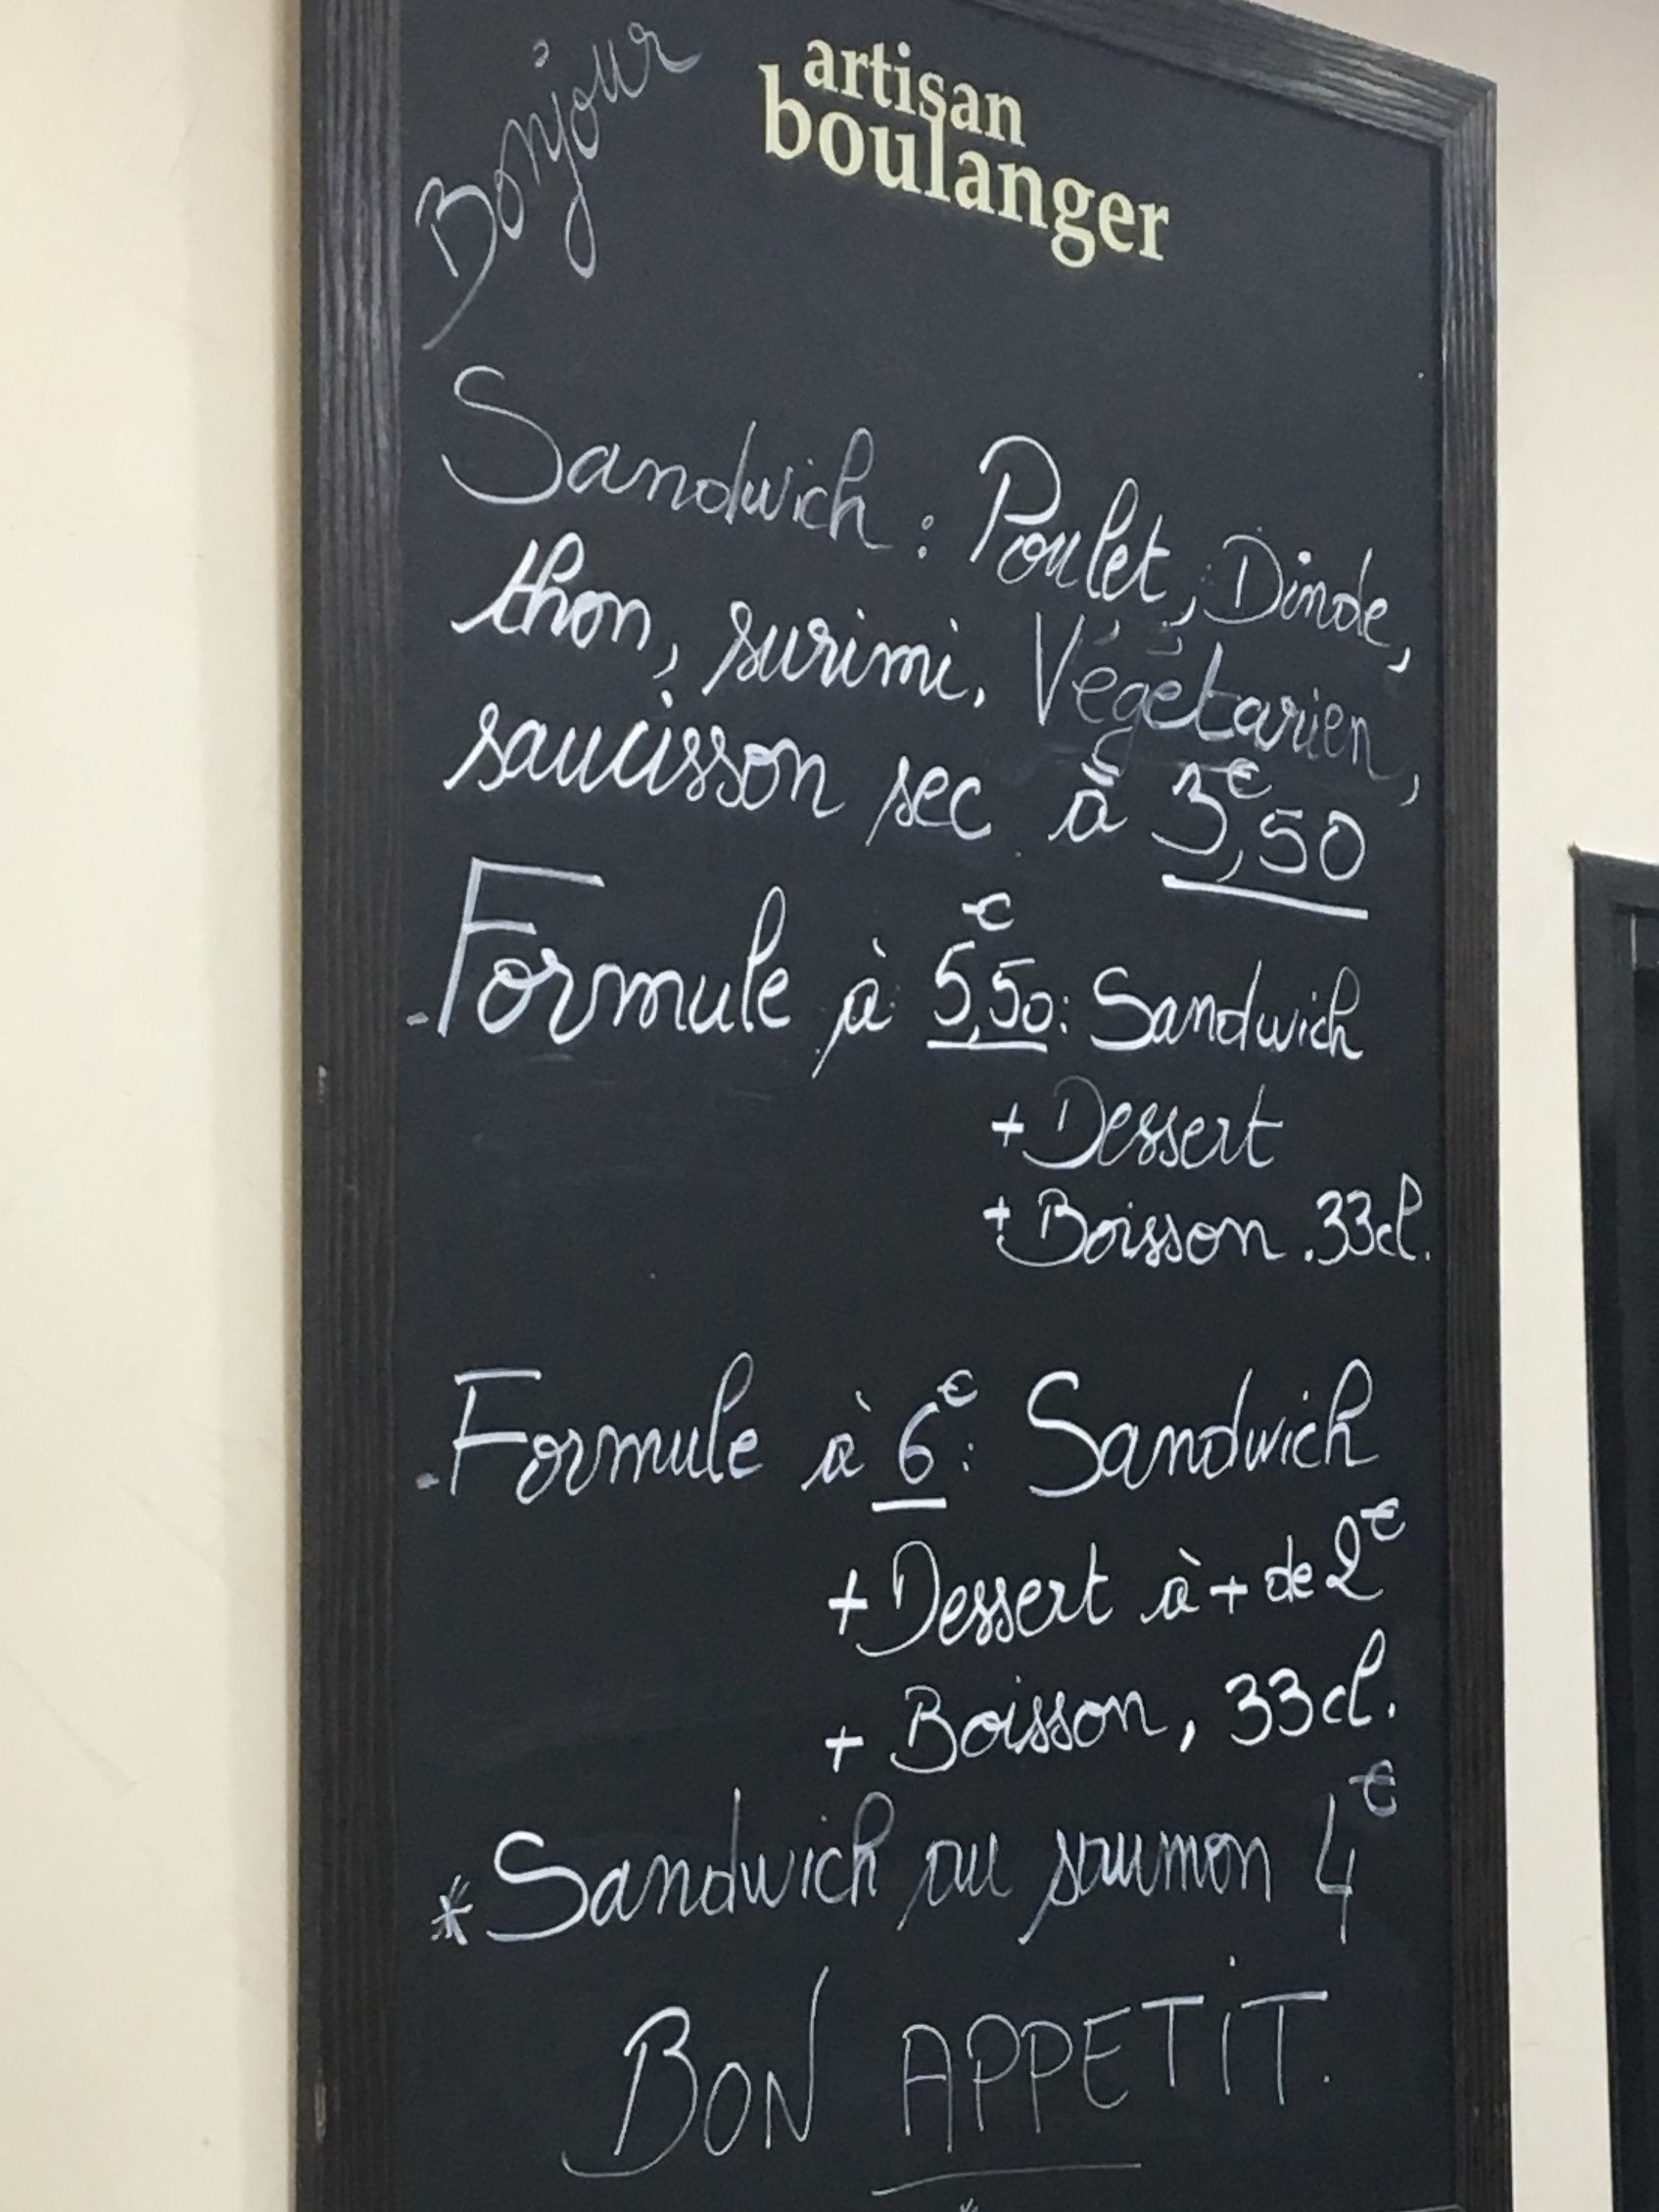 Bonjour
artisan
boulanger
Sandwich : Poulet, Dinde,
thon, surimi, Végétarien,
saucisson sec à 3€,50
-Formule à 5€,50: Sandwich
+ Dessert
+ Boisson .33cl.
-Formule à 6€: Sandwich
+ Dessert à + de 2€
+ Boisson, 33cl.
* Sandwich au saumon 4€
BON APPETIT.